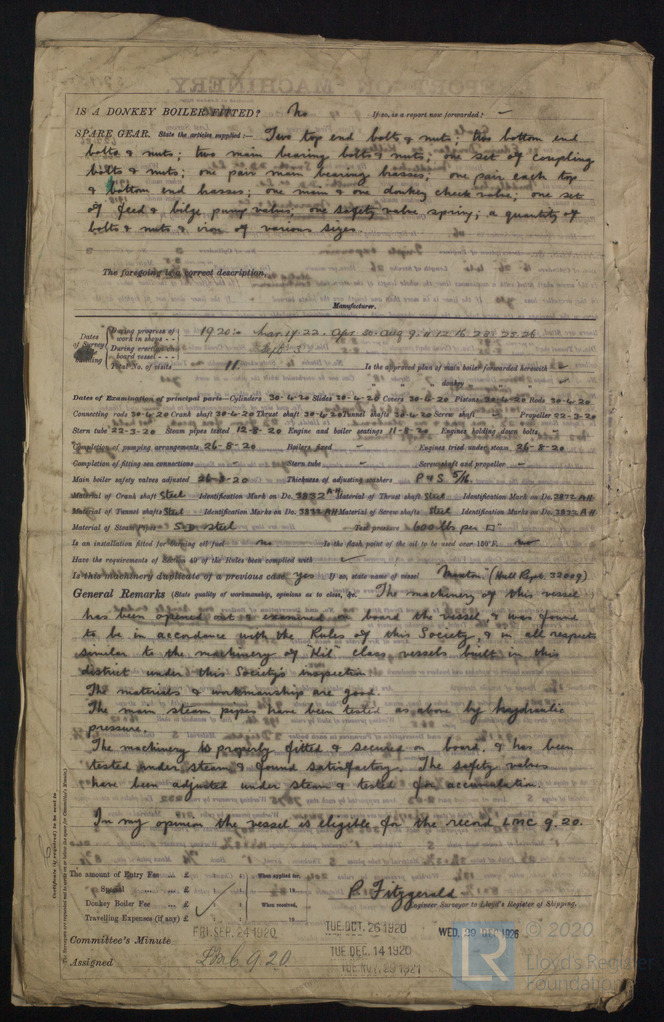 IS A DONKEY BOILER FITTED? No If so, is a report now forwarded? –
SPARE GEAR. State the articles supplied:— Two top end bolts & nuts; two bottom end
bolts & nuts; two main bearing bolts & nuts; one set of coupling
bolts & nuts; one pair main bearing brasses; one pair each top
& bottom end brasses; one main & one donkey check valve; one set
of feed & bilge pump valves; one safety valve spring; a quantity of
bolts & nuts & iron of various sizes.
The foregoing is a correct description,
Manufacturer.
Dates of Survey while building
During progress of work in shops - - 1920:- Mar 17. 22. Apr 30. Aug 9. 11. 12. 16. 20. 23. 26
During erection on board vessel - - - Sept 3
Total No. of visits 11 Is the approved plan of main boiler forwarded herewith –
" " " donkey " " " –
Dates of Examination of principal parts—Cylinders 30-4-20 Slides 30-4-20 Covers 30-4-20 Pistons 30-4-20 Rods 30-4-20
Connecting rods 30-4-20 Crank shaft 30-4-20 Thrust shaft 30-4-20 Tunnel shafts 30-4-20 Screw shaft – Propeller 22-3-20
Stern tube 22-3-20 Steam pipes tested 12-8-20 Engine and boiler seatings 11-8-20 Engines holding down bolts –
Completion of pumping arrangements 26-8-20 Boilers fixed – Engines tried under steam 26-8-20
Completion of fitting sea connections – Stern tube – Screw shaft and propeller –
Main boiler safety valves adjusted 26-8-20 Thickness of adjusting washers P & S 5/16
Material of Crank shaft Steel Identification Mark on Do. 3832 AH Material of Thrust shaft Steel Identification Mark on Do. 3832 AH
Material of Tunnel shafts Steel Identification Marks on Do. 3832 AH Material of Screw shafts Steel Identification Marks on Do. 3832 AH
Material of Steam Pipes S.D. Steel Test pressure 600 lbs per □"
Is an installation fitted for burning oil fuel no Is the flash point of the oil to be used over 150°F. no
Have the requirements of Section 49 of the Rules been complied with
Is this machinery duplicate of a previous case yes If so, state name of vessel (Hull Rept. 32009)
General Remarks (State quality of workmanship, opinions as to class, &c. The machinery of this vessel
has been opened out & examined on board the vessel & was found
to be in accordance with the Rules of this Society, & in all respects
similar to the machinery of "Kil" class vessels built in this
district under this Society's inspection.
The materials & workmanship are good.
The main steam pipes have been tested as above by hydraulic
pressure.
The machinery is properly fitted & secured on board, & has been
tested under steam & found satisfactory. The safety valves
have been adjusted under steam & tested for accumulation.
In my opinion the vessel is eligible for the record LMC 9. 20.
Certificate (if required) to be sent to
The amount of Entry Fee ... £ : : When applied for,
Special ... ... £ : : 19
Donkey Boiler Fee ... £ : : When received,
Travelling Expenses (if any) £ : : 19
P. Fitzgerald
Engineer Surveyor to Lloyd's Register of Shipping.
Committee's Minute FRI. SEP. 24 1920 TUE. OCT. 26 1920 WED. 29 DEC 1926
TUE. DEC. 14 1920
Assigned 9.20. TUE. NOV. 29 1921
LR
© 2020
Lloyd's Register
Foundation